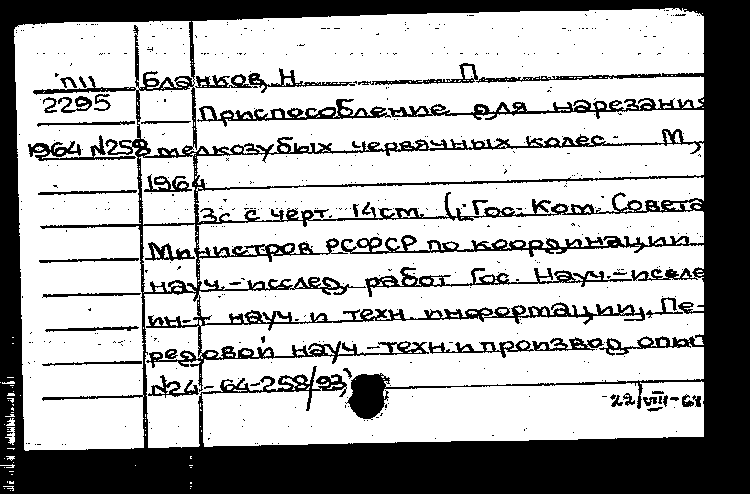 П11 Бланков, Н. П.
2295 Приспособление для нарезания
1964 №258 мелкозубых червячных колес. М.,
1964
3с с черт. 14см. (Гос. Ком. Совета
Министров РСФСР по координации
науч.-исслед. работ Гос. Науч.-иссле
ин-т науч. и техн. информации, Пе-
редовой науч.-техн. и производ. опыт
№24-64-258/93)
22/VIII-64